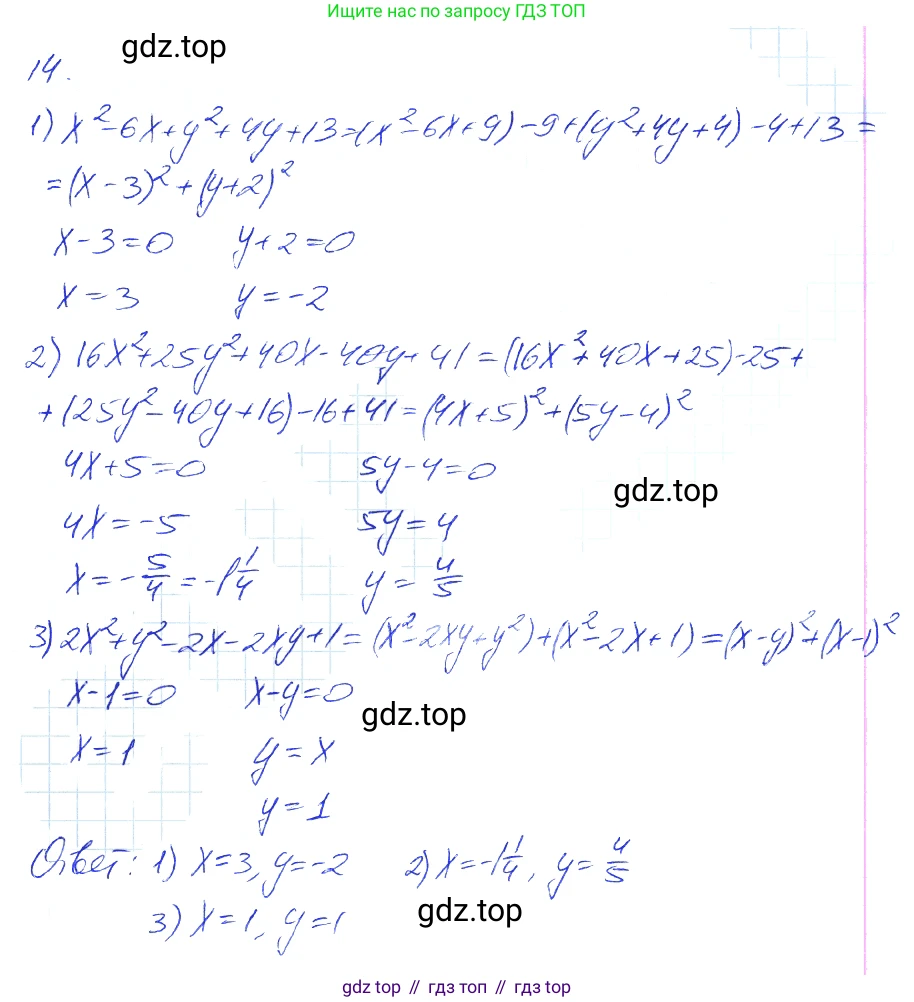 Ищите нас по запросу ГДЗ ТОП
gdz.top
14.
1) x² - 6x + y² + 4y + 13 = (x² - 6x + 9) - 9 + (y² + 4y + 4) - 4 + 13 =
= (x - 3)² + (y + 2)²
x - 3 = 0 y + 2 = 0
x = 3 y = -2
2) 16x² + 25y² + 40x - 40y + 41 = (16x² + 40x + 25) - 25 +
+ (25y² - 40y + 16) - 16 + 41 = (4x + 5)² + (5y - 4)²
4x + 5 = 0 5y - 4 = 0
gdz.top
4x = -5 5y = 4
x = -5/4 = -1 1/4 y = 4/5
3) 2x² + y² - 2x - 2xy + 1 = (x² - 2xy + y²) + (x² - 2x + 1) = (x - y)² + (x - 1)²
x - 1 = 0 x - y = 0
gdz.top
x = 1 y = x
y = 1
Ответ: 1) x = 3, y = -2 2) x = -1 1/4, y = 4/5
3) x = 1, y = 1
gdz.top
gdz top // гдз топ // gdz top